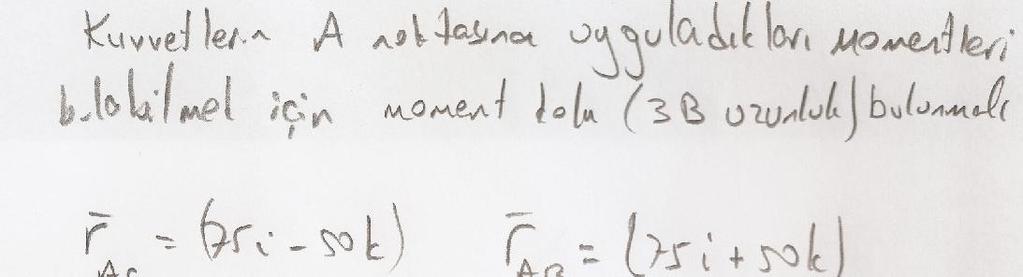 Kuvvetlerin A noktasına uyguladıkları momentleri
bulabilmek için moment kolu (3B uzunluk) bulunmalı
r̄_AC = (75i - 50k)    r̄_AB = (75i + 50k)